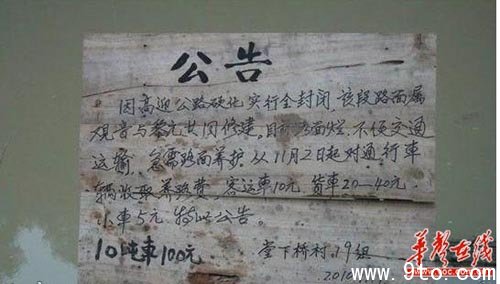 公告
因高迎公路硬化实行全封闭,该段路面属
观音与黎元共同修建,目前路面烂,不便交通
运输,急需路面养护,从11月2日起对通行车
辆收取养路费,客运车10元 货车20-40元
小车5元 特此公告。
10吨车100元
堂下桥村19组
2010
华声在线
www.9lco.com